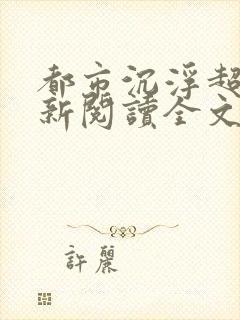 都市沉浮超
新閱讀全文
許麗